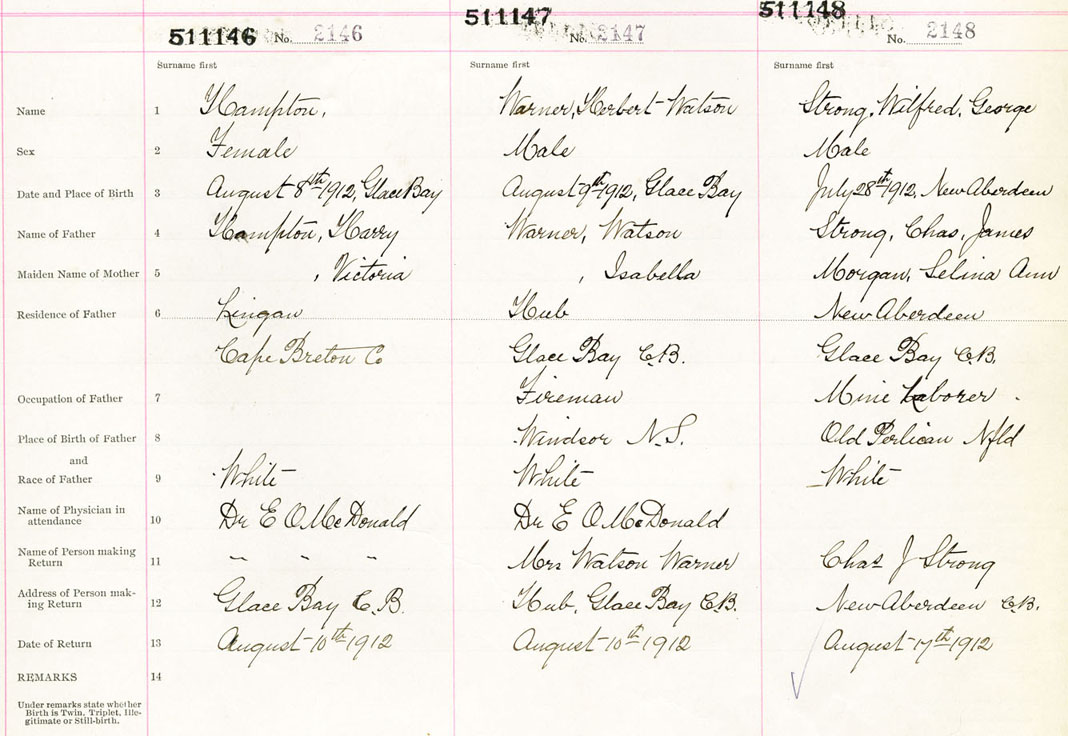 511146 No. 2146 511147 No. 2147 511148 No. 2148
Surname first Surname first Surname first
Name 1 Hampton, Warner, Herbert Watson Strong, Wilfred, George
Sex 2 Female Male Male
Date and Place of Birth 3 August 8th 1912, Glace Bay August 9th 1912, Glace Bay July 28th 1912, New Aberdeen
Name of Father 4 Hampton, Harry Warner, Watson Strong, Chas, James
Maiden Name of Mother 5 , Victoria , Isabella Morgan, Selina Ann
Residence of Father 6 Lingan Hub New Aberdeen
Cape Breton Co Glace Bay C.B. Glace Bay C.B.
Occupation of Father 7 Fireman Mine Laborer
Place of Birth of Father 8 Windsor N.S. Old Perlican Nfld
and
Race of Father 9 White White White
Name of Physician in
attendance 10 Dr E O McDonald Dr E O McDonald
Name of Person making
Return 11 " " " Mrs Watson Warner Chas J Strong
Address of Person mak-
ing Return 12 Glace Bay C.B. Hub, Glace Bay C.B. New Aberdeen C.B.
Date of Return 13 August 10th 1912 August 10th 1912 August 17th 1912
REMARKS 14
Under remarks state whether
Birth is Twin, Triplet, Ille-
gitimate or Still-birth.